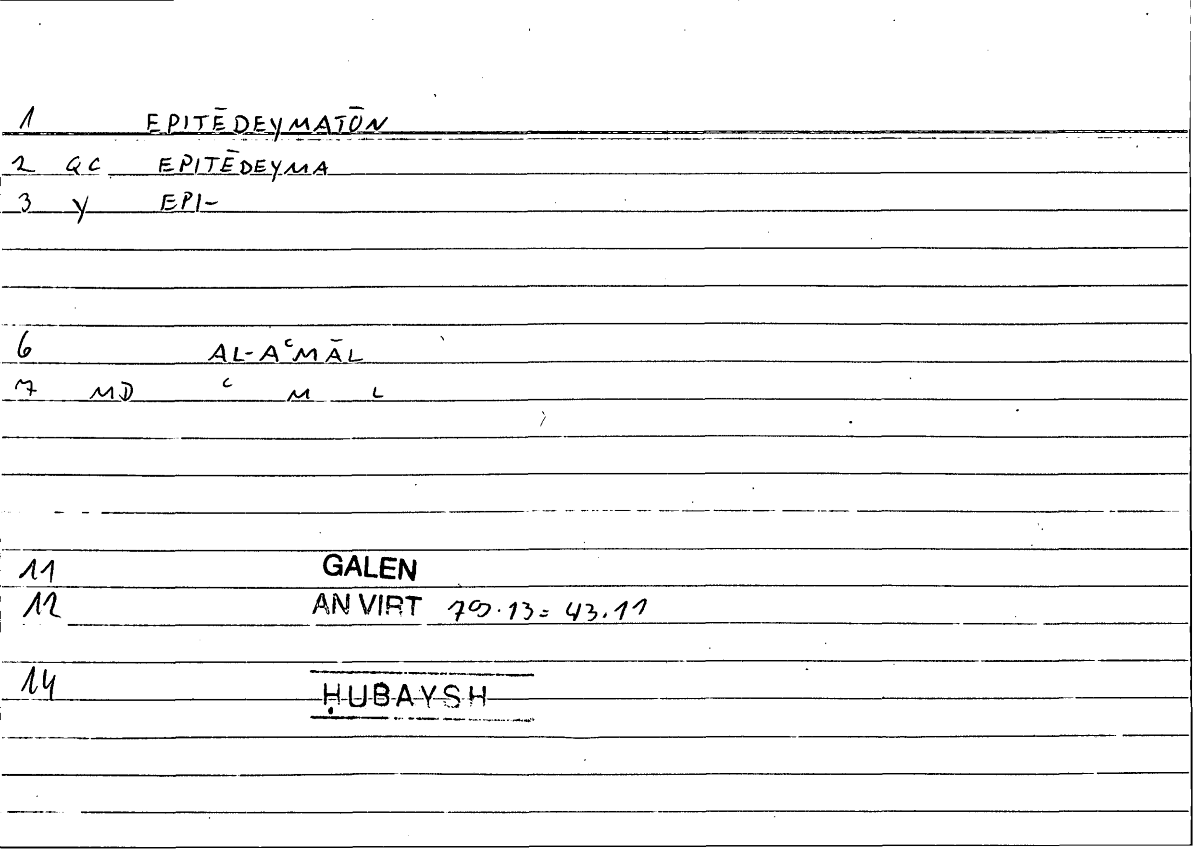 1 EPITĒDEYMATŌN
2 GC EPITĒDEYMA
3 Y EPI-
6 AL-AᶜMĀL
7 MD ᶜ M L
11 GALEN
12 AN VIRT 79.13= 43.11
14 ḤUBAYSH